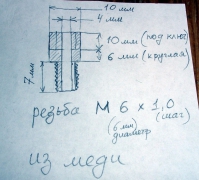 10 мм
4 мм
10 мм (под ключ)
6 мм (круглая)
7 мм
резьба М 6 х 1,0
(6 мм) (шаг)
диаметр
из меди